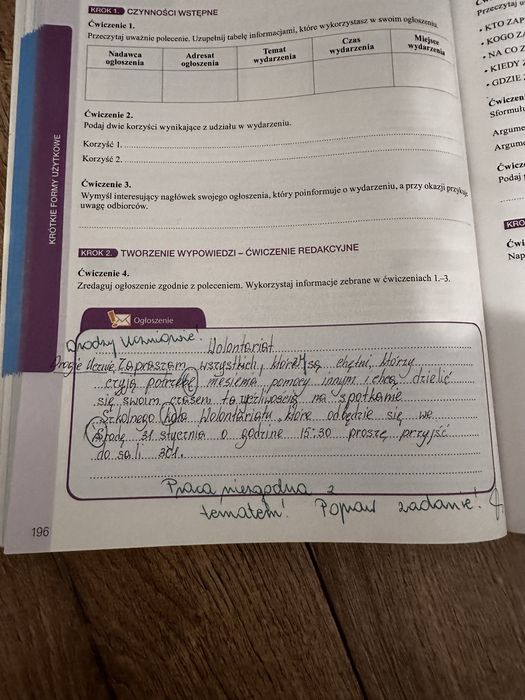 KROK 1. CZYNNOŚCI WSTĘPNE
Ćwiczenie 1.
Przeczytaj uważnie polecenie. Uzupełnij tabelę informacjami, które wykorzystasz w swoim ogłoszeniu.
Nadawca ogłoszenia Adresat ogłoszenia Temat wydarzenia Czas wydarzenia Miejsce wydarzenia
Ćwiczenie 2.
Podaj dwie korzyści wynikające z udziału w wydarzeniu.
Korzyść 1.
Korzyść 2.
Ćwiczenie 3.
Wymyśl interesujący nagłówek swojego ogłoszenia, który poinformuje o wydarzeniu, a przy okazji przykuje
uwagę odbiorców.
KROK 2. TWORZENIE WYPOWIEDZI – ĆWICZENIE REDAKCYJNE
Ćwiczenie 4.
Zredaguj ogłoszenie zgodnie z poleceniem. Wykorzystaj informacje zebrane w ćwiczeniach 1.–3.
Ogłoszenie
Drodzy Uczniowie!
Wolontariat
Zapraszam wszystkich, którzy są chętni, którzy
czują potrzebę niesienia pomocy innym i chcą dzielić
się swoim czasem tą życzliwością na spotkanie
Szkolnego koła Wolontariatu, które odbędzie się we
środę 31 stycznia o godzinie 15:30 proszę przyjść
do sali 301.
Praca niezgodna z
tematem! Popraw zadanie!
196
KRÓTKIE FORMY UŻYTKOWE
Przeczytaj
• KTO
• KOGO
• NA CO
• KIEDY
• GDZIE
Podaj
KRO